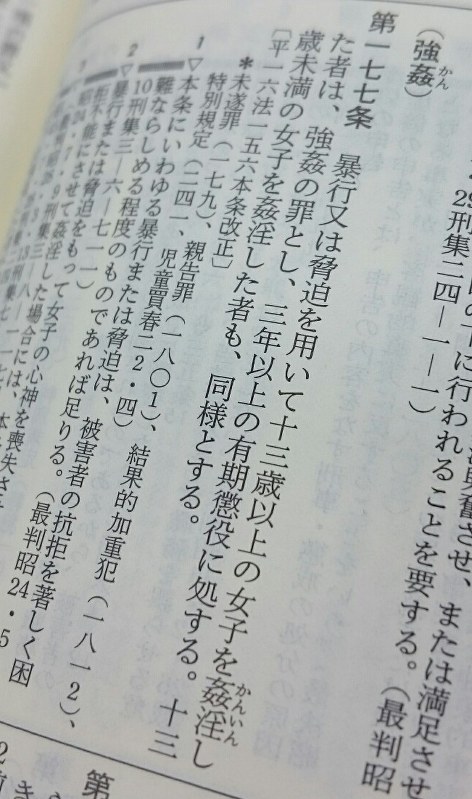 に行われることを要する。（最判昭
29刑集二四—一—一）
（強姦）
かん
第一七七条　暴行又は脅迫を用いて十三歳以上の女子を姦淫し
かんいん
た者は、強姦の罪とし、三年以上の有期懲役に処する。十三
歳未満の女子を姦淫した者も、同様とする。
〔平一六法一五六本条改正〕
＊未遂罪（一七九）、親告罪（一八〇１）、結果的加重犯（一八一２）、
特別規定（二四一、児童買春二２・四）
１▽本条にいわゆる暴行または脅迫は、被害者の抗拒を著しく困
難ならしめる程度のものであれば足りる。（最判昭24・5
10刑集三—六—七一一）
２▽暴行または脅迫をもって女子の心神を喪失させ
拒不能にさせて姦淫した場合には、本
昭24・7・9刑集三—八—一一七
第